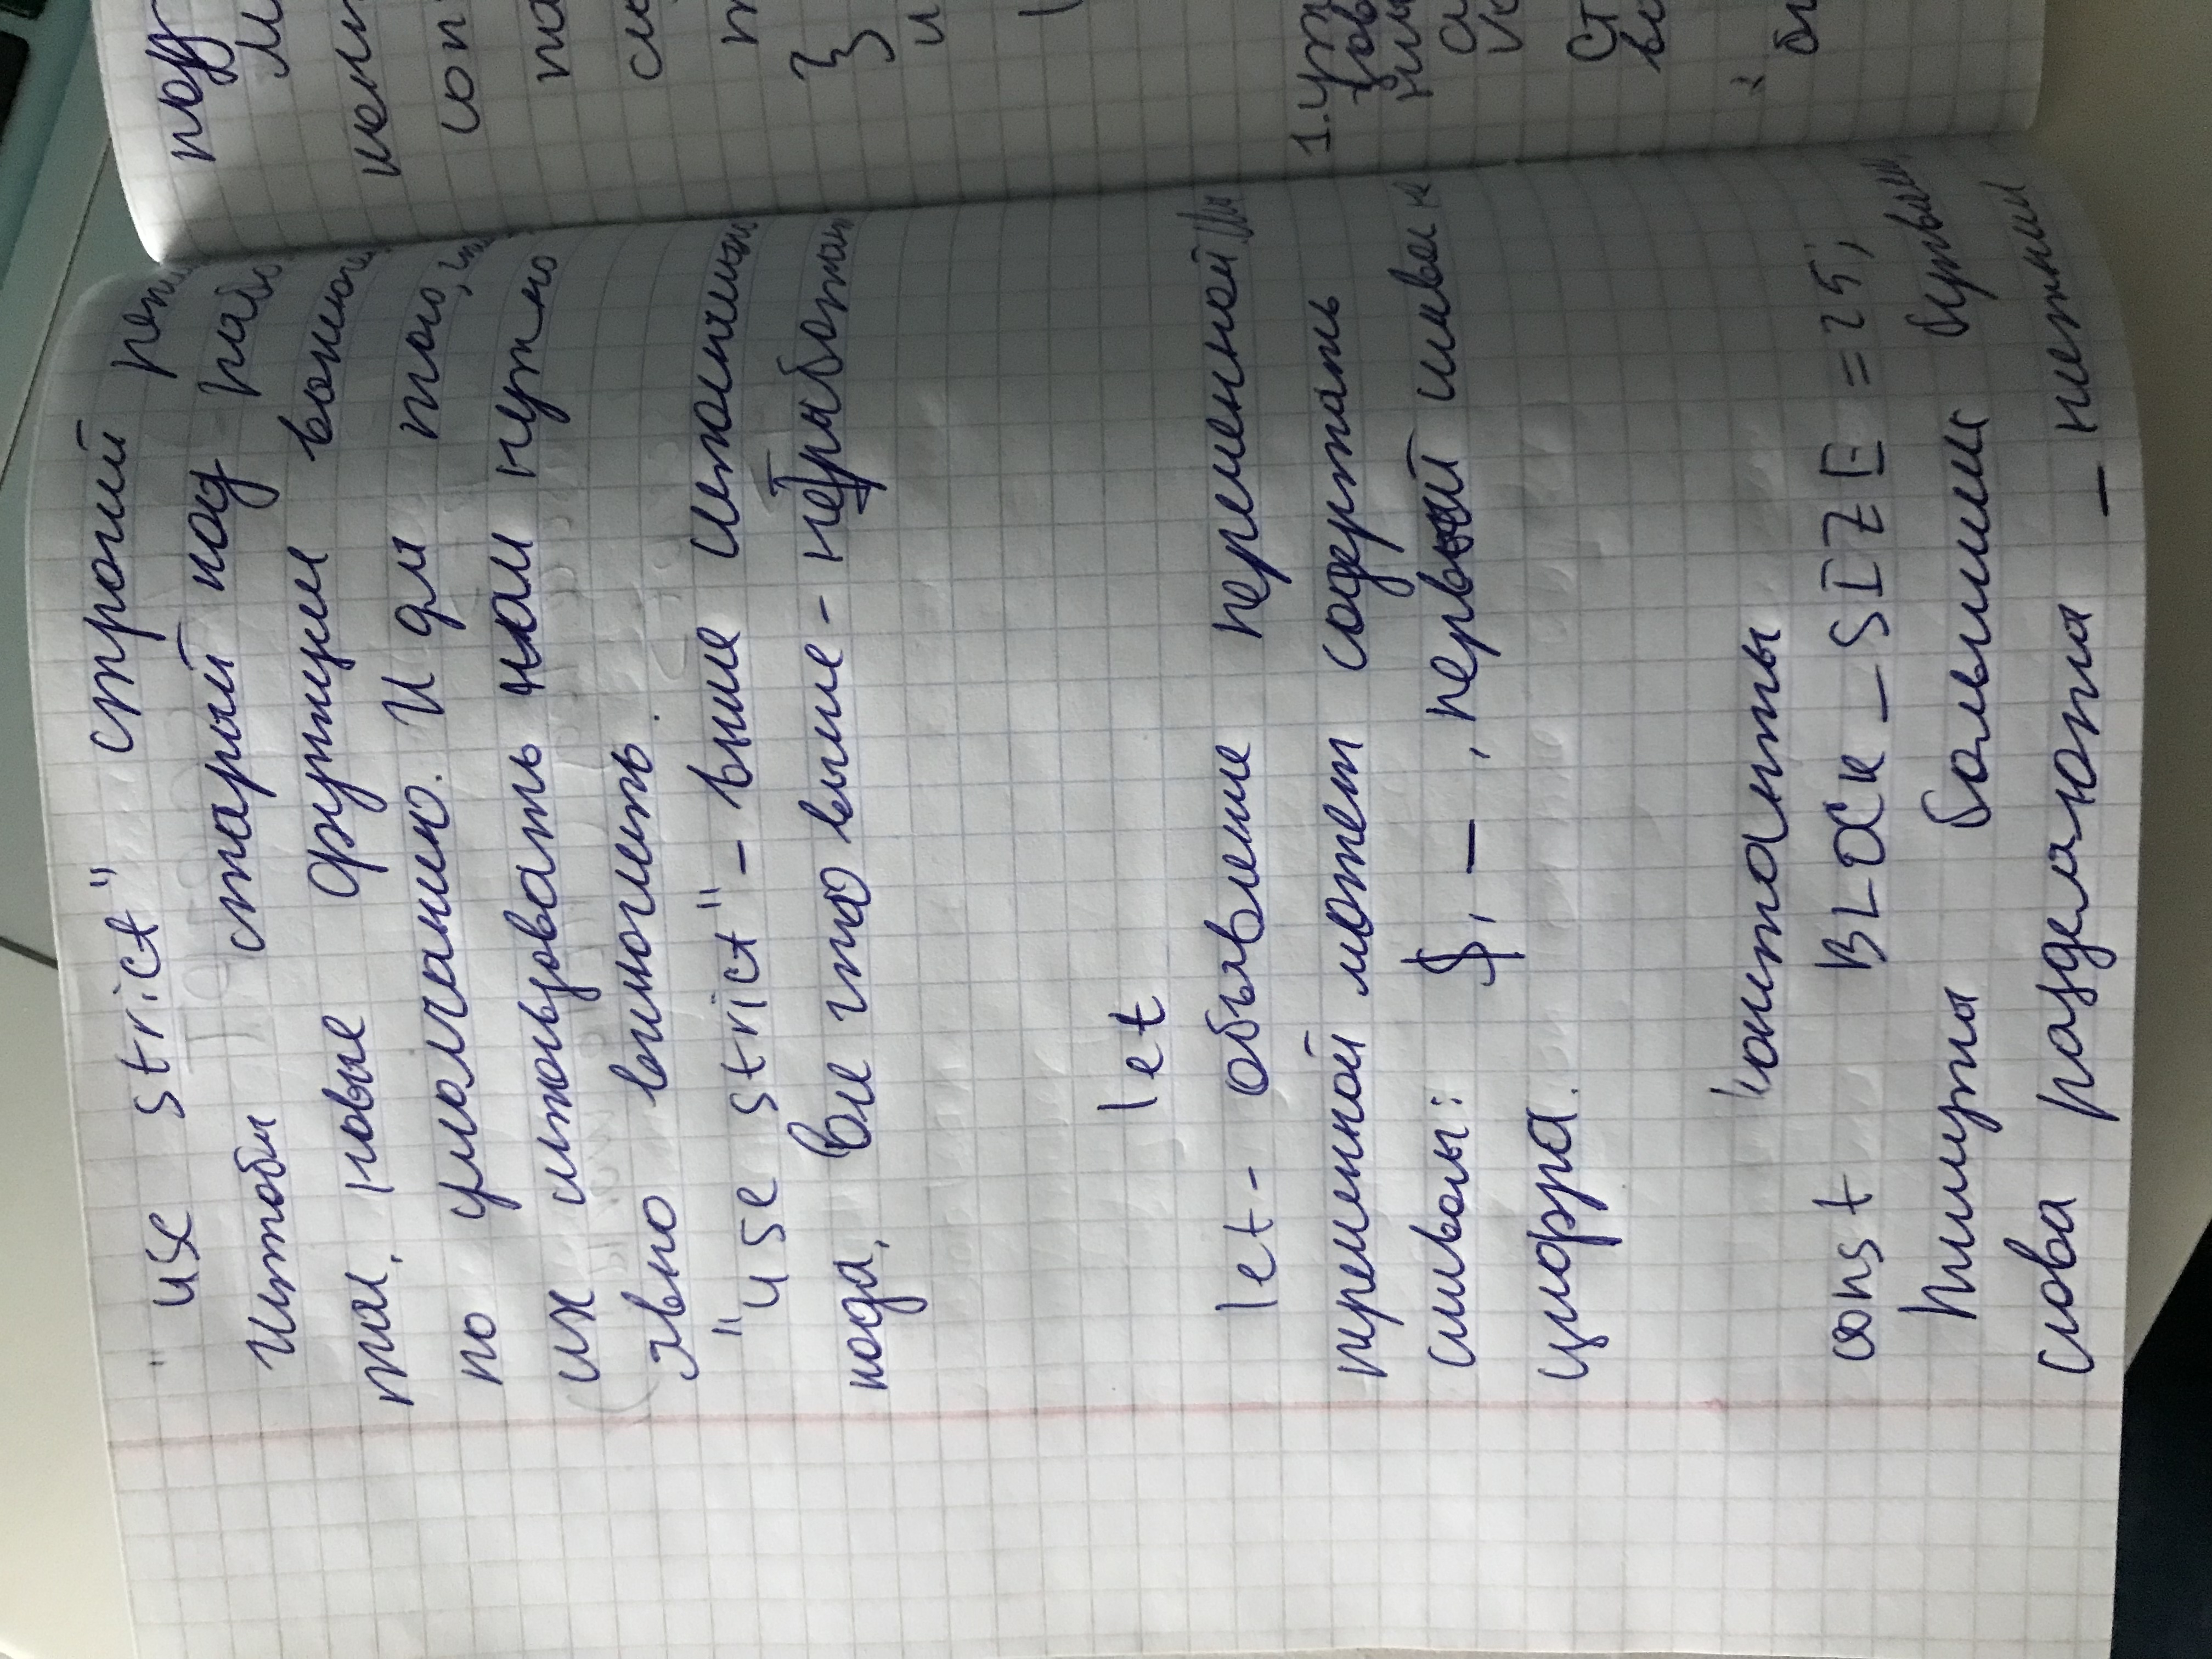 "use strict" строгий реж
Чтобы старый код рабо
тал, новые функции
по умолчанию. И для того,
их использовать нам нужно
явно включить.
"use strict" - выше
кода, Все что выше - не работает
let
let - объявление переменной. Имя
переменной может содержать
символы: $, _ , первый символ не
цифра.
Константы
const BLOCK_SIZE = 25;
Пишутся большими буквами,
слова разделяются _ нижним
под
М
конт
con
па
сло
}
и
1. уж
зов
ст